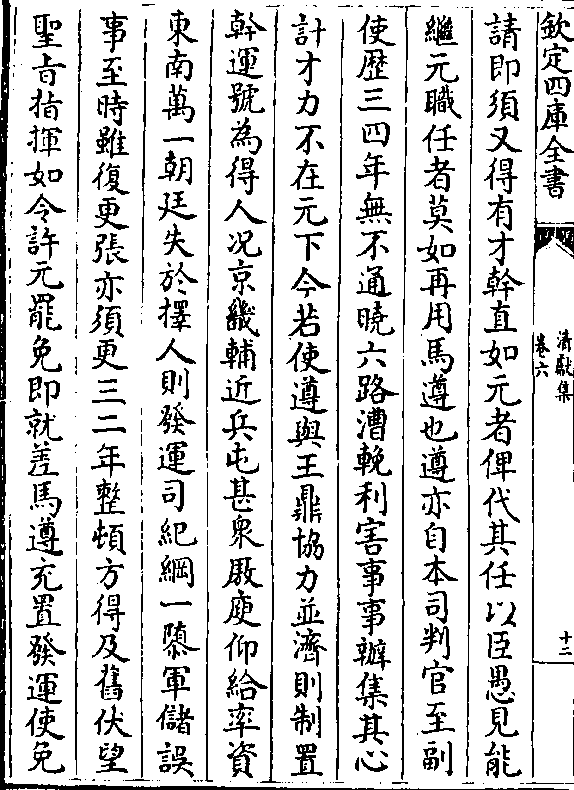 欽定四庫全書
清獻集
卷六
十二
請即須又得有才幹直如元者俾代其任以臣愚見能
繼元職任者莫如再用馬遵也遵亦自本司判官至副
使歴三四年無不通曉六路漕輓利害事事辦集其心
計才力不在元下今若使遵與王鼎協力並濟則制置
幹運號為得人况京畿輔近兵屯甚衆厫庾仰給率資
東南萬一朝廷失於擇人則發運司紀綱一隳軍儲誤
事至時雖復更張亦須更三二年整頓方得及舊伏望
聖㫖指揮如令許元罷免即就差馬遵充置發運使免